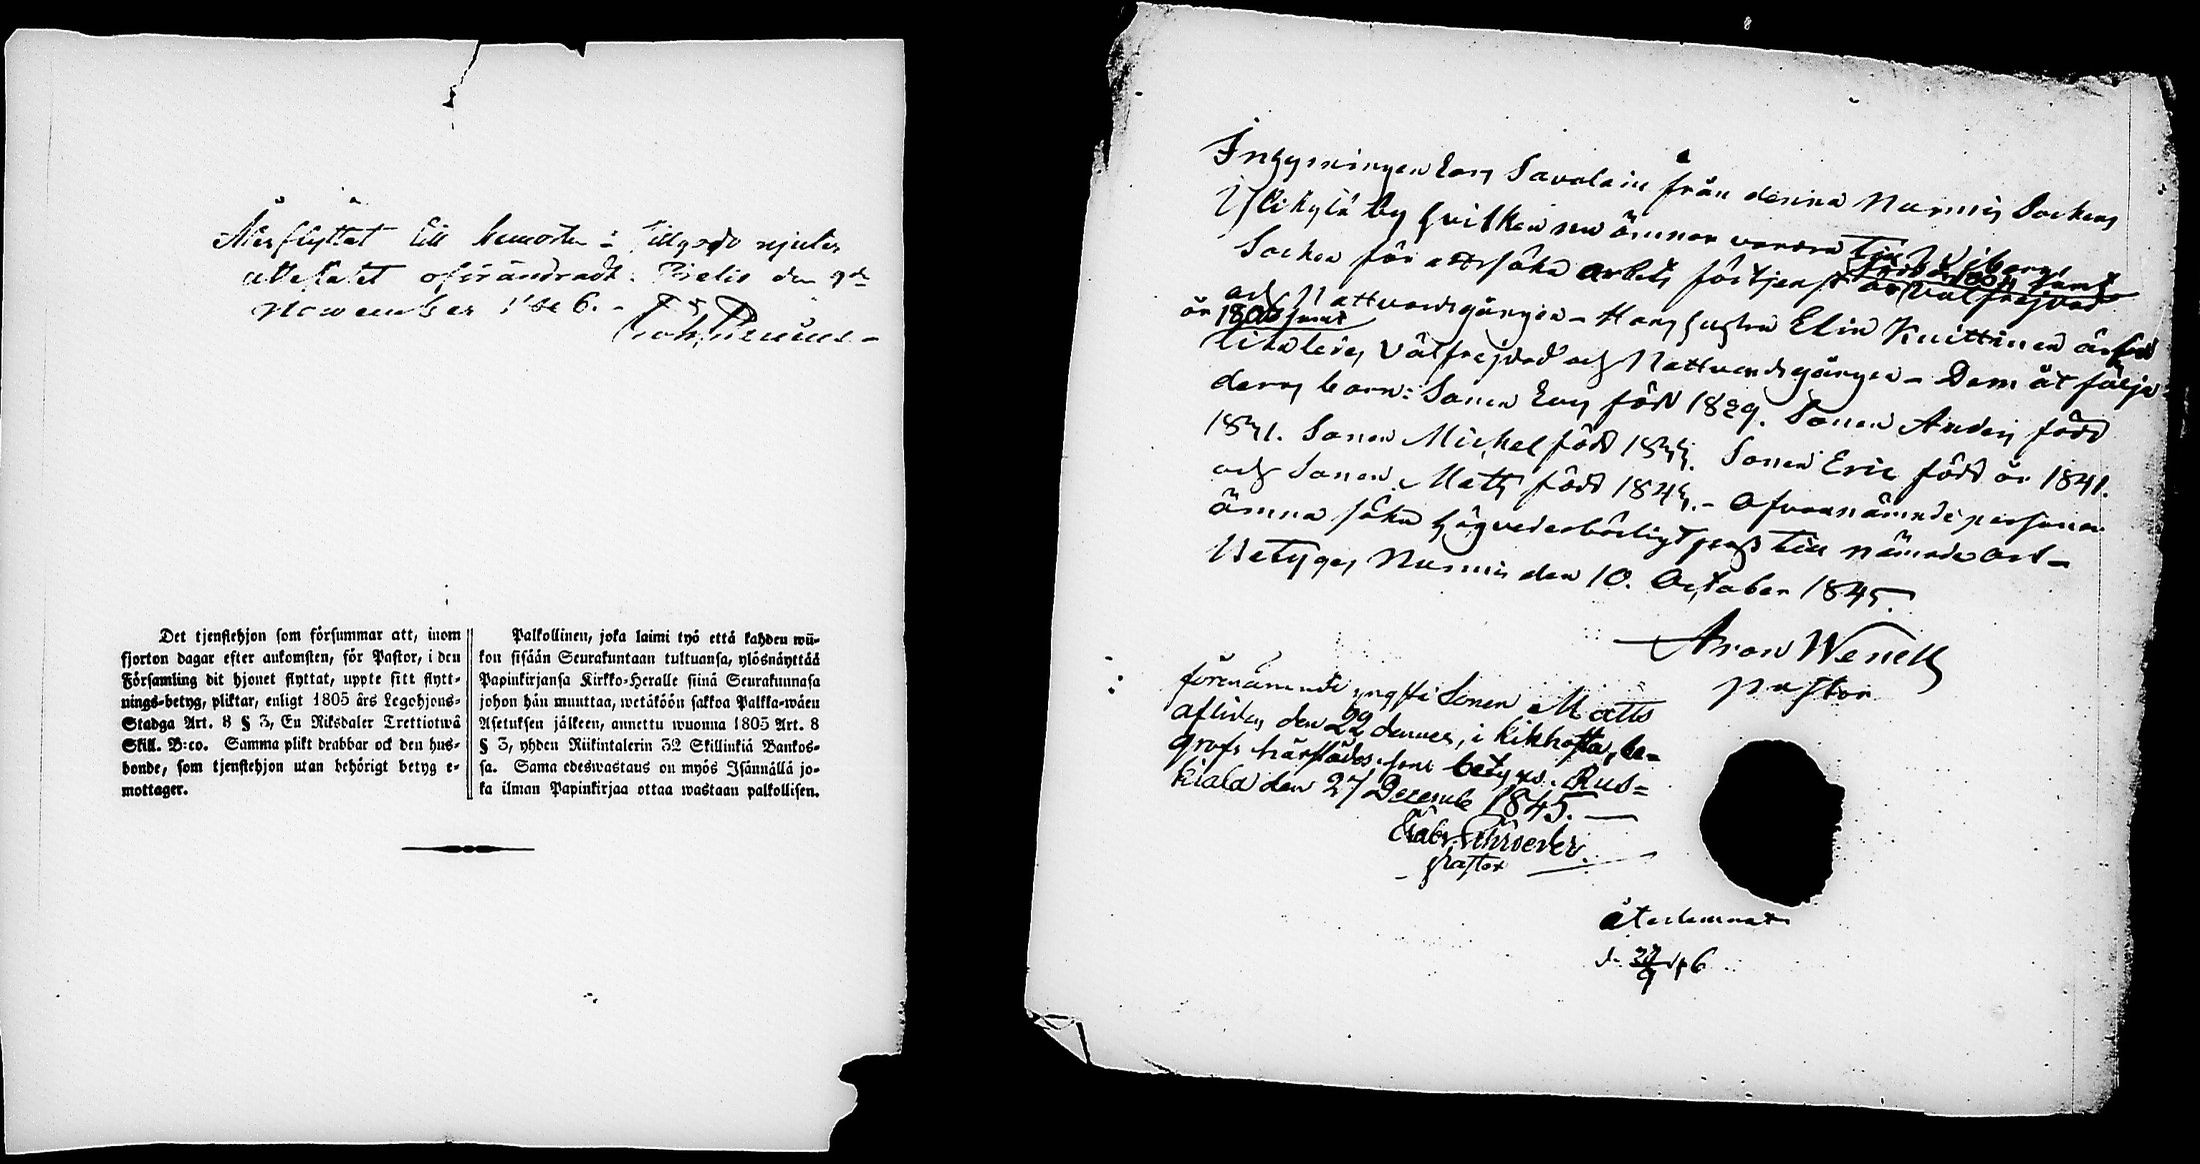 Återflyttat till hemorten i tillgodo njuter
attestatet oförändradt. Pielis den 9de
November 1846. -
Joh.
Det tjenstehjon som försummar att, inom
fjorton dagar efter ankomsten, för Pastor, i den
Församling dit hjonet flyttat, uppte sitt flytt-
nings-betyg, pliktar, enligt 1805 års Legohjons-
Stadga Art. 8 § 3, En Riksdaler Trettiotwå
Skill. B:co. Samma plikt drabbar ock den hus-
bonde, som tjenstehjon utan behörigt betyg e-
mottager.
Palkollinen, joka laimi lyö että kahden wii-
kon sisään Seurakuntaan tultuansa, ylösnäyttää
Papinkirjansa Kirkko-Heralle siinä Seurakunnasa
johon hän muuttaa, wetäköön sakkoa Palkka-wäen
Asetuksen jälkeen, annettu wuonna 1805 Art. 8
§ 3, yhden Riikintalerin 32 Skillinkiä Bankos-
sa. Sama edeswastaus on myös Isännällä jo-
ka ilman Papinkirjaa ottaa wastaan palkollisen.
Inhysningen Lars Savolain från denna Nurmis Sockens
by hvilken nu ämnar vandra till Wiborgs
född år samt
Socken för att söka arbets förtjenst är välfrejdad
och Nattvardsgången - Hans hustru Elin Knittinen är född
år samt
likaledes välfrejdad och Nattvardsgången - Dem åt följa
deras barn: Sonen Lars född 1829. Sonen Anders född
1831. Sonen Michel född Sonen Eric född år 1841.
och Sonen Matts född - Ofvannämnde personer
ämna söka Högvederbörligt pass till nämnde ort -
Betygas Nurmis den 10. October 1845.
Aron Wenell
pastor
förenämnde yngsta Sonen Matts
afliden den 22 dennes, i kikhosta, be-
grofs härstädes. som betygas. Rus=
kiala den 27 Decemb 1845. -
Gabr. Schroeder.
- Pastor
återlemnat
d. 46